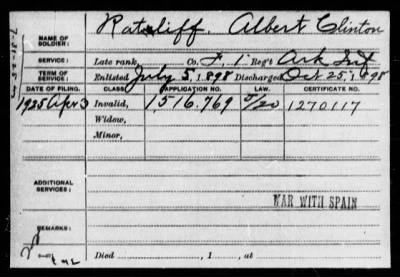 NAME OF SOLDIER: Ratcliff, Albert Clinton
SERVICE: Late rank, Co. F, 1 Reg't Ark Inf
TERM OF SERVICE: Enlisted July 5, 1898 Discharged Oct 25, 1898
DATE OF FILING. CLASS. APPLICATION NO. LAW. CERTIFICATE NO.
1925 Apr 3 Invalid, 1,516,769 5/20 1270117
Widow,
Minor,
ADDITIONAL SERVICES:
WAR WITH SPAIN
REMARKS:
Died , 1 , at